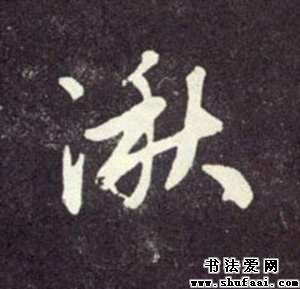 湫
书法爱网
www.shufaai.com